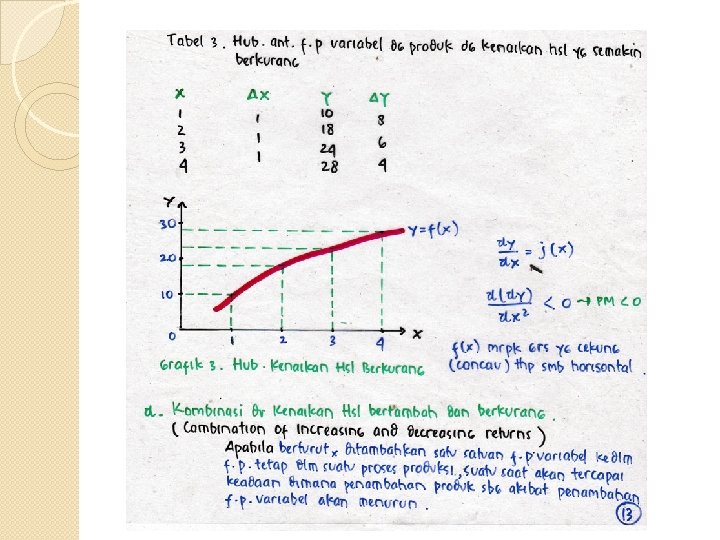 Tabel 3. Hub. ant. f.p variabel dg produk dg kenaikan hsl yg semakin
berkurang
X ΔX Y ΔY
1 10
1 8
2 18
1 6
3 24
1 4
4 28
Y
30
20
10
0 1 2 3 4 X
y=f(x)
dy/dx = j(x)
d(dy)/dx² < 0 → PM < 0
f(x) mrpk grs yg cekung
(concav) thp smb horisontal
Grafik 3. Hub. Kenaikan Hsl Berkurang
d. Kombinasi dr Kenaikan Hsl bertambah dan berkurang.
(Combination of Increasing and decreasing returns)
Apabila berturut x ditambahkan satu satuan f.p.variabel kedlm
f.p.tetap dlm suatu proses produksi, suatu saat akan tercapai
keadaan dimana penambahan produk sbg akibat penambahan
f.p.variabel akan menurun.
13